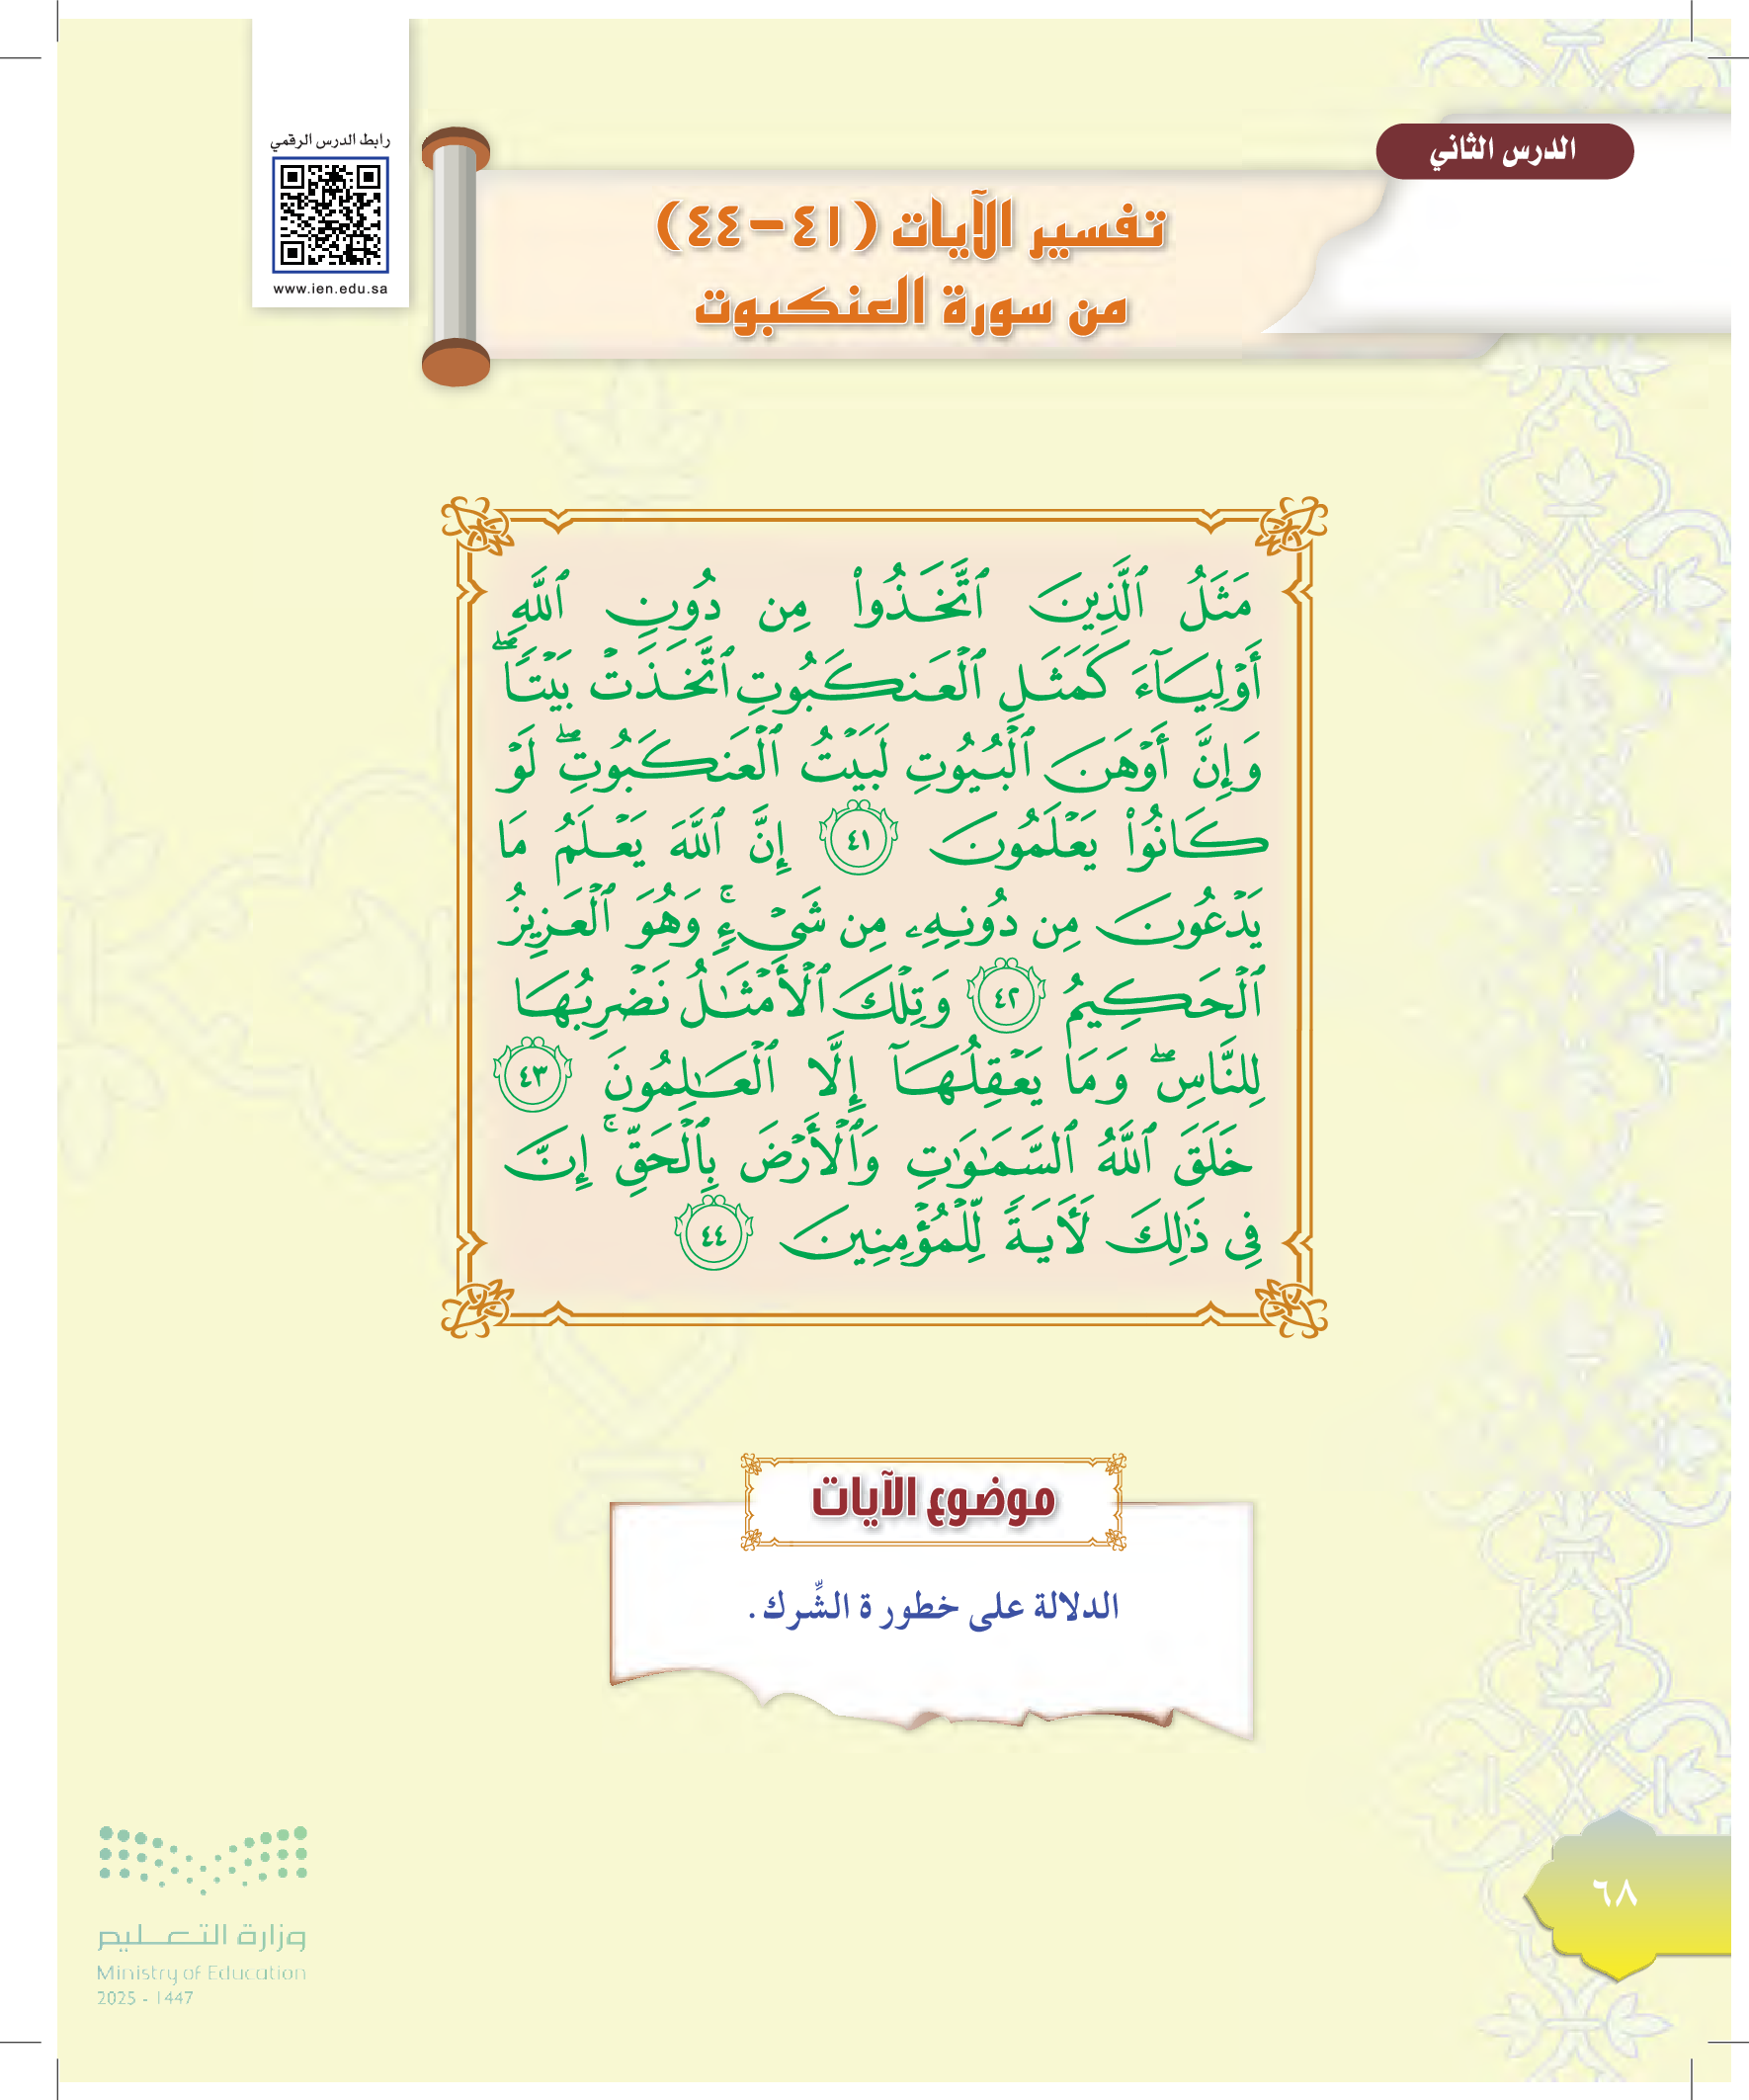 الدرس الثاني
رابط الدرس الرقمي
www.ien.edu.sa
تفسير الآيات (٤١-٤٤)
من سورة العنكبوت
مَثَلُ ٱلَّذِينَ ٱتَّخَذُوا۟ مِن دُونِ ٱللَّهِ
أَوْلِيَآءَ كَمَثَلِ ٱلْعَنكَبُوتِ ٱتَّخَذَتْ بَيْتًۭا ۖ
وَإِنَّ أَوْهَنَ ٱلْبُيُوتِ لَبَيْتُ ٱلْعَنكَبُوتِ ۖ لَوْ
كَانُوا۟ يَعْلَمُونَ ٤١ إِنَّ ٱللَّهَ يَعْلَمُ مَا
يَدْعُونَ مِن دُونِهِۦ مِن شَىْءٍۢ ۚ وَهُوَ ٱلْعَزِيزُ
ٱلْحَكِيمُ ٤٢ وَتِلْكَ ٱلْأَمْثَـٰلُ نَضْرِبُهَا
لِلنَّاسِ ۖ وَمَا يَعْقِلُهَآ إِلَّا ٱلْعَـٰلِمُونَ ٤٣
خَلَقَ ٱللَّهُ ٱلسَّمَـٰوَٰتِ وَٱلْأَرْضَ بِٱلْحَقِّ ۚ إِنَّ
فِى ذَٰلِكَ لَـَٔايَةًۭ لِّلْمُؤْمِنِينَ ٤٤
موضوع الآيات
الدلالة على خطورة الشِّرك.
وزارة التعليم
Ministry of Education
2025 - 1447
٦٨